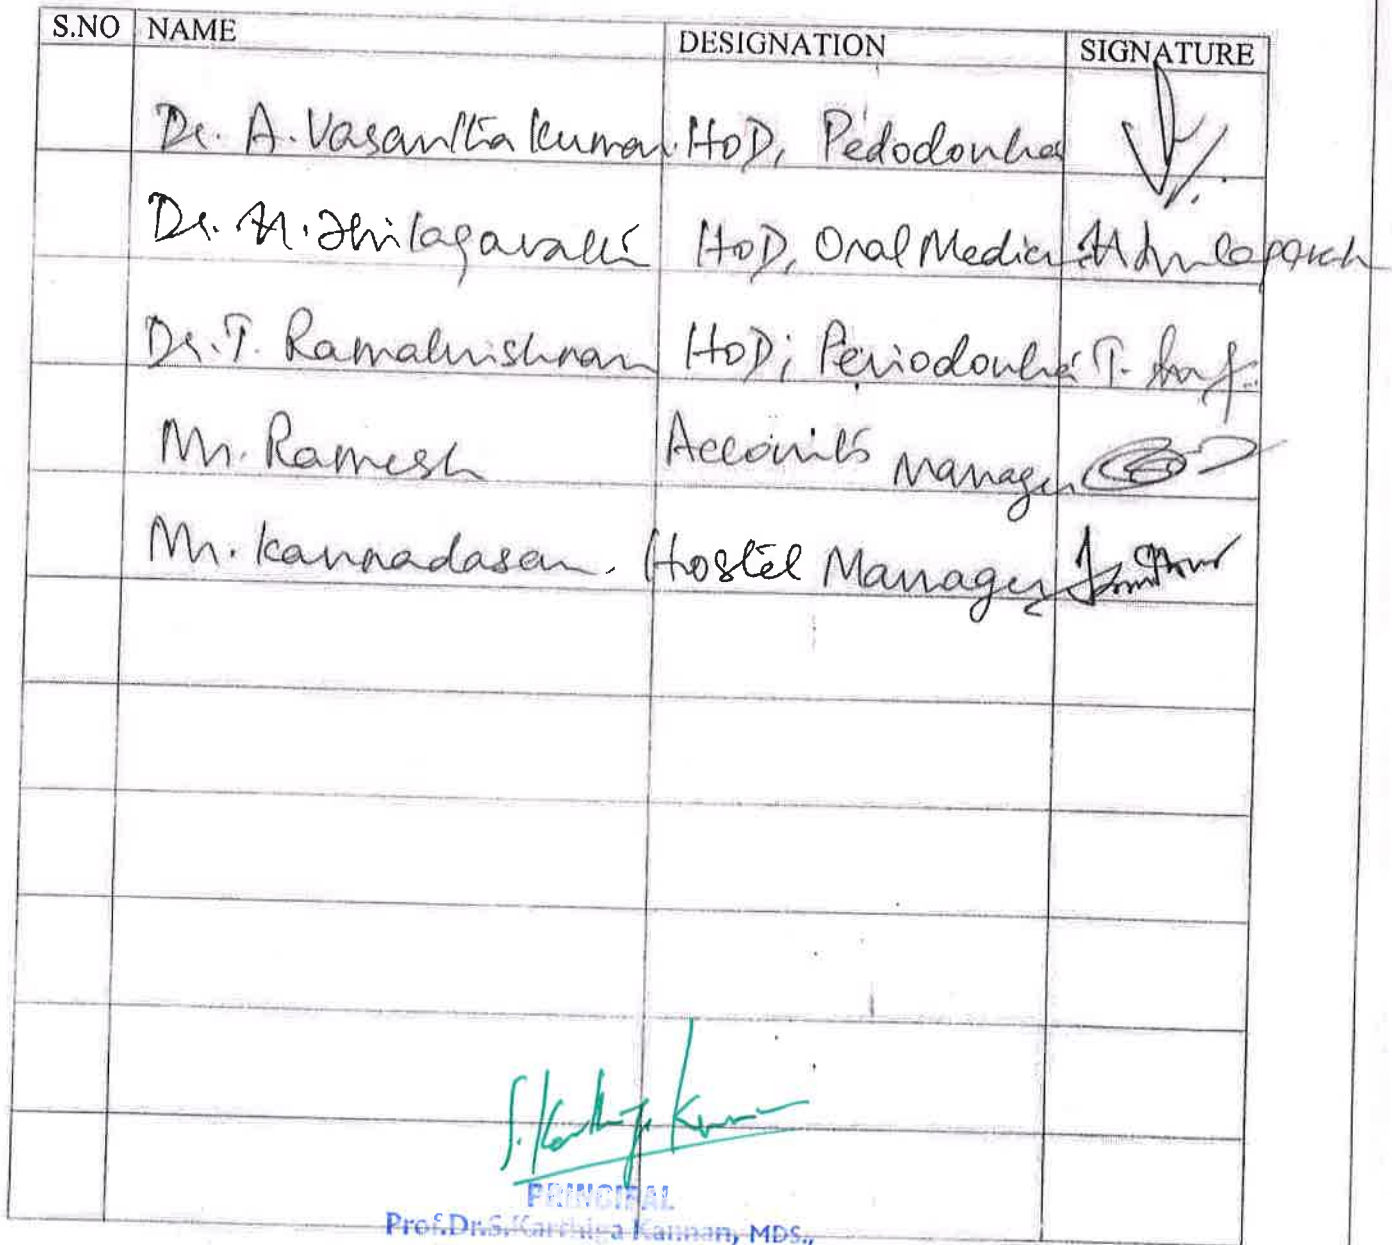 S.NO NAME DESIGNATION SIGNATURE
Dr. A. Vasantha kumar. HoD, Pedodontia
Dr. M. Thilagavathi HoD, Oral Medici
Dr. T. Ramakrishnan HoD; Periodontia T.
Mr. Ramesh Accounts Manager
Mr. kannadasan. Hostel Manager
S. Karthiga Kannan
PRINCIPAL
Prof.Dr.S.Karthiga Kannan, MDS.,